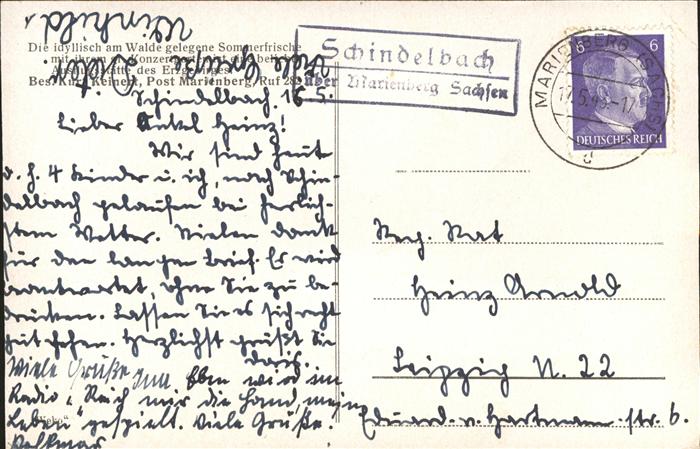 Die idyllisch am Walde gelegene Sommerfrische
mit ihrem Konzertgarten ist eine beliebte
Ausflugstätte des Erzgebirges
Bes. Kurt Reinert, Post Marienberg, Ruf 282
Schindelbach
über Marienberg Sachsen
MARIENBERG (SACHS)
17.5.43-17
d
6 6
DEUTSCHES REICH
Schindelbach, 16.5.
Lieber Onkel Heinz!
Wir sind heute
d. h. 4 Kinder u. ich, nach Schin-
delbach gelaufen bei herrlich-
stem Wetter. Vielen Dank
für den langen Brief. Es wird
beantwortet, ohne Sie zu be-
drücken. Lassen Sie es sich recht
gut gehen. Herzlichst grüßt Sie
Viele Grüße Eben wird im
Radio „Reich mir die Hand mein
Leben" gespielt. Viele Grüße!
Volkmar
Viele Grüße
Winhild
Reg. Rat
Heinz Arnold
Leipzig N. 22
Eduard-v.-Hartmann-str. 6.